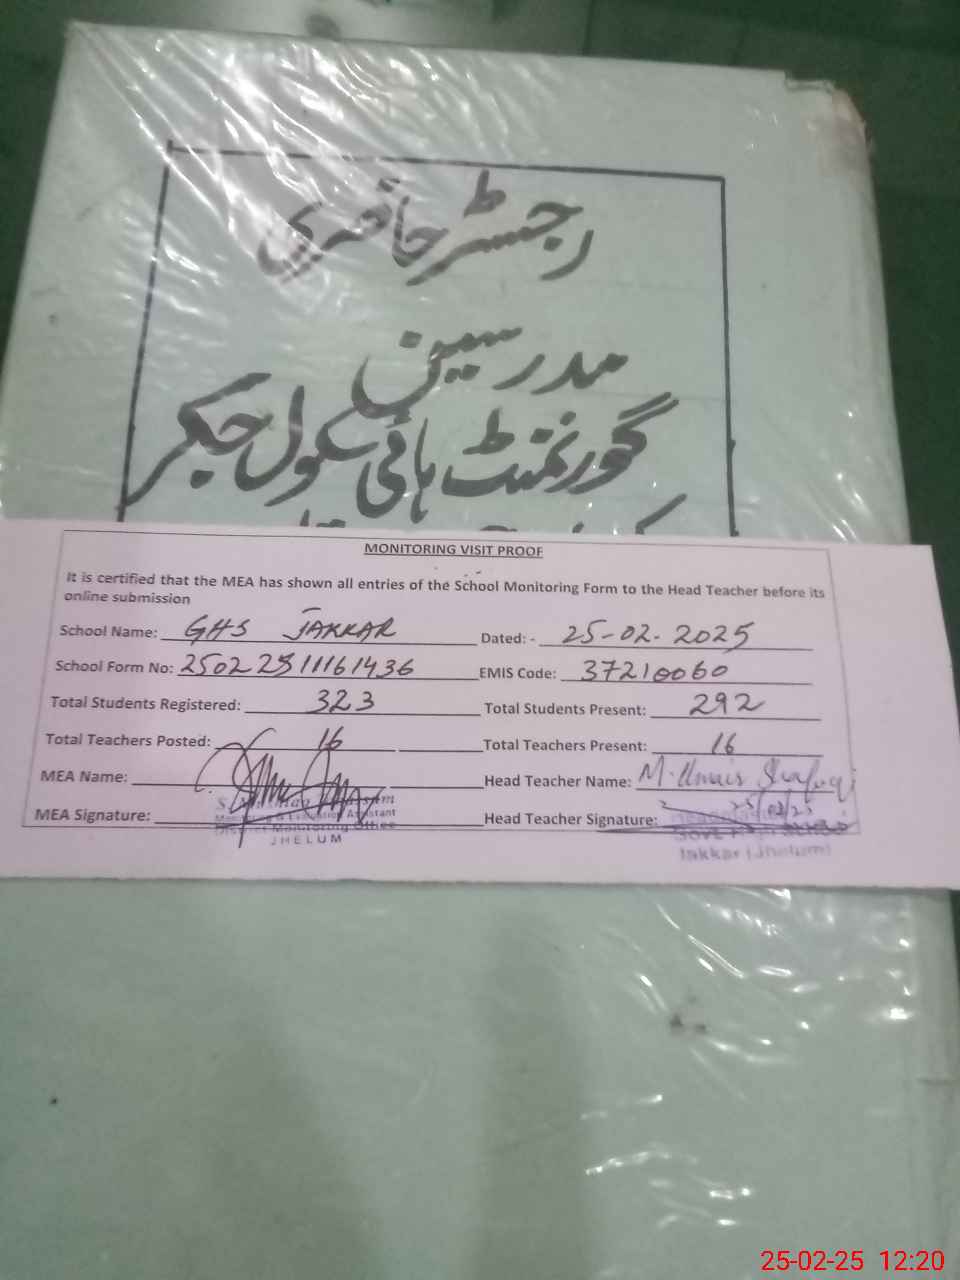 رجسٹر حاضری
مدرسین
گورنمنٹ ہائی سکول جکر
MONITORING VISIT PROOF
It is certified that the MEA has shown all entries of the School Monitoring Form to the Head Teacher before its
online submission
School Name: GHS JAKKAR Dated: - 25-02-2025
School Form No: 25022511161436 EMIS Code: 37210060
Total Students Registered: 323 Total Students Present: 292
Total Teachers Posted: 16 Total Teachers Present: 16
MEA Name: Head Teacher Name: M. Umais
MEA Signature: Head Teacher Signature: 25/02/25
Monitoring & Evaluation Assistant
District Monitoring Office
JHELUM
Jakkar (Jhelum)
25-02-25 12:20